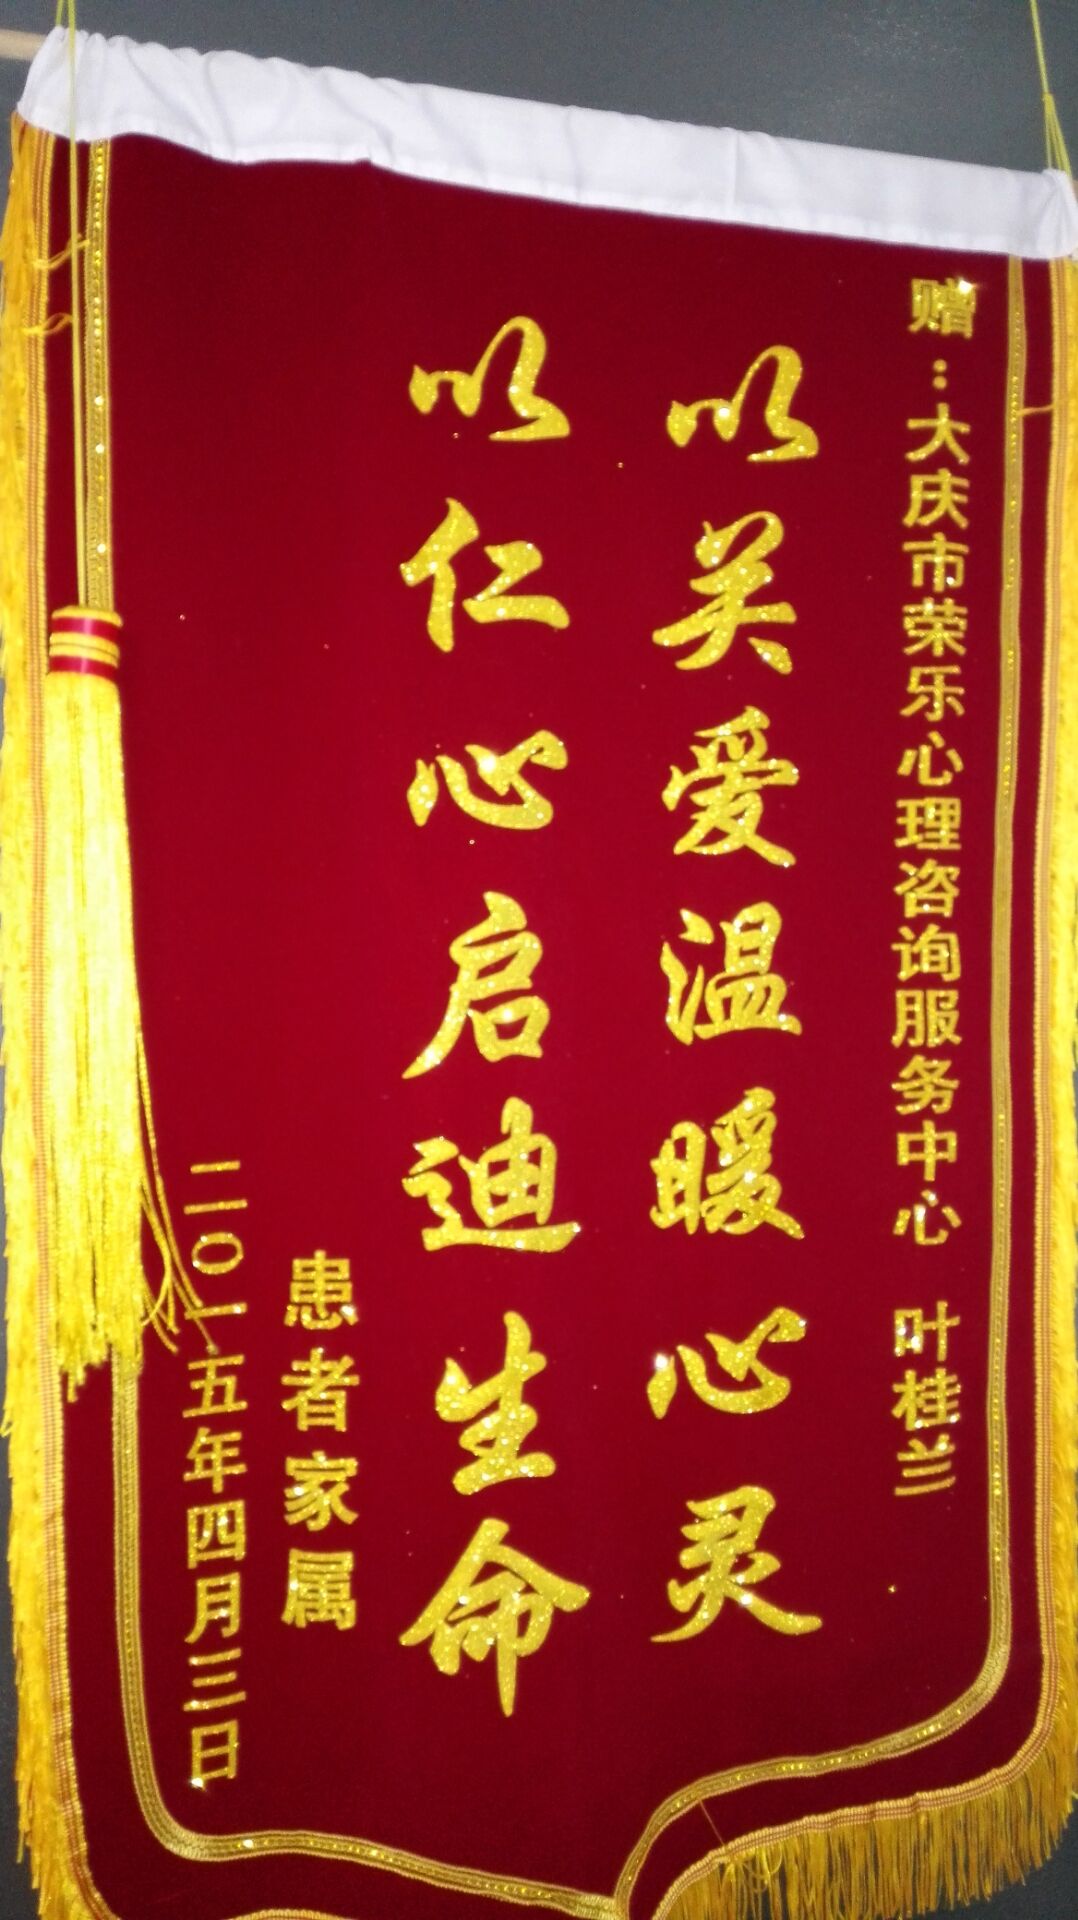 赠：大庆市荣乐心理咨询服务中心 叶桂兰
以关爱温暖心灵
以仁心启迪生命
患者家属
二〇一五年四月三日